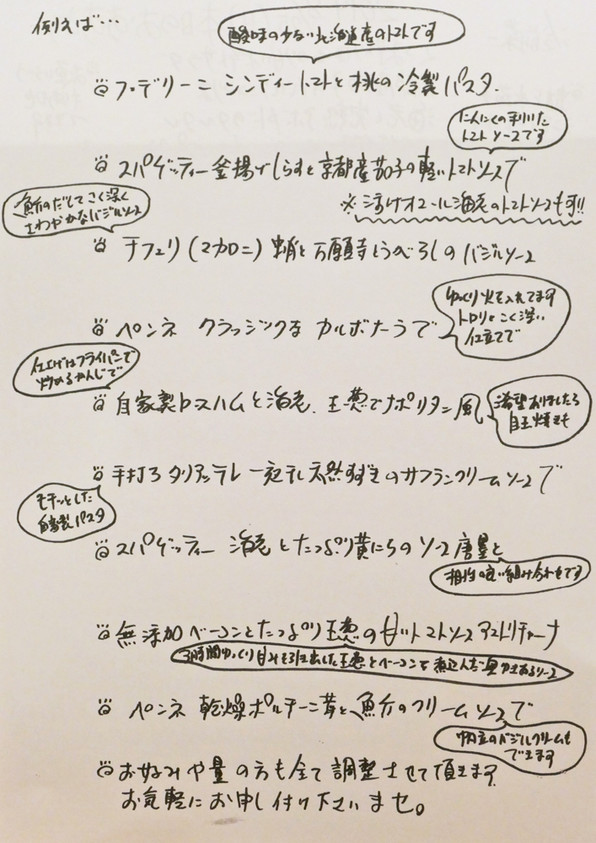 例えば…
酸味の少ない北海道産のトマトです
フェデリーニ シンディートマトと桃の冷製パスタ.
にんにくの利いた
トマトソースです
スパゲッティー釜揚げしらすと京都産茄子の軽いトマトソースで
※オマール海老のトマトソースも可!!
魚介のだしでこく深く
さわやかなバジルソース
チフェリ(マカロニ)蛸と万願寺とうがらしのバジルソース
ゆっくり火を入れてます
トロリとこく深い
仕立てで
ペンネ クラッシックな カルボナーラで
仕上げはフライパンで
炒めるかんじで
自家製ロースハムと海老、玉葱でナポリタン風
希望ありましたら
目玉焼きも
手打ちタリアッテレ 一庭干し天然すずきのサフランクリームソースで
モチッとした
自家製パスタ
スパゲッティー 海老とたっぷり黄にらのソース唐墨と
相性の良い組み合わせです
無添加ベーコンとたっぷり玉葱の甘いトマトソースアマトリチャーナ
3時間ゆっくり甘みを引き出した玉葱とベーコンを煮込んだ魅力あるソース
ペンネ 乾燥ポルチーニ茸と魚介のクリームソースで
バジルクリームも
できます
お好みや量の方も全て調整させて頂きます
お気軽にお申し付け下さいませ。